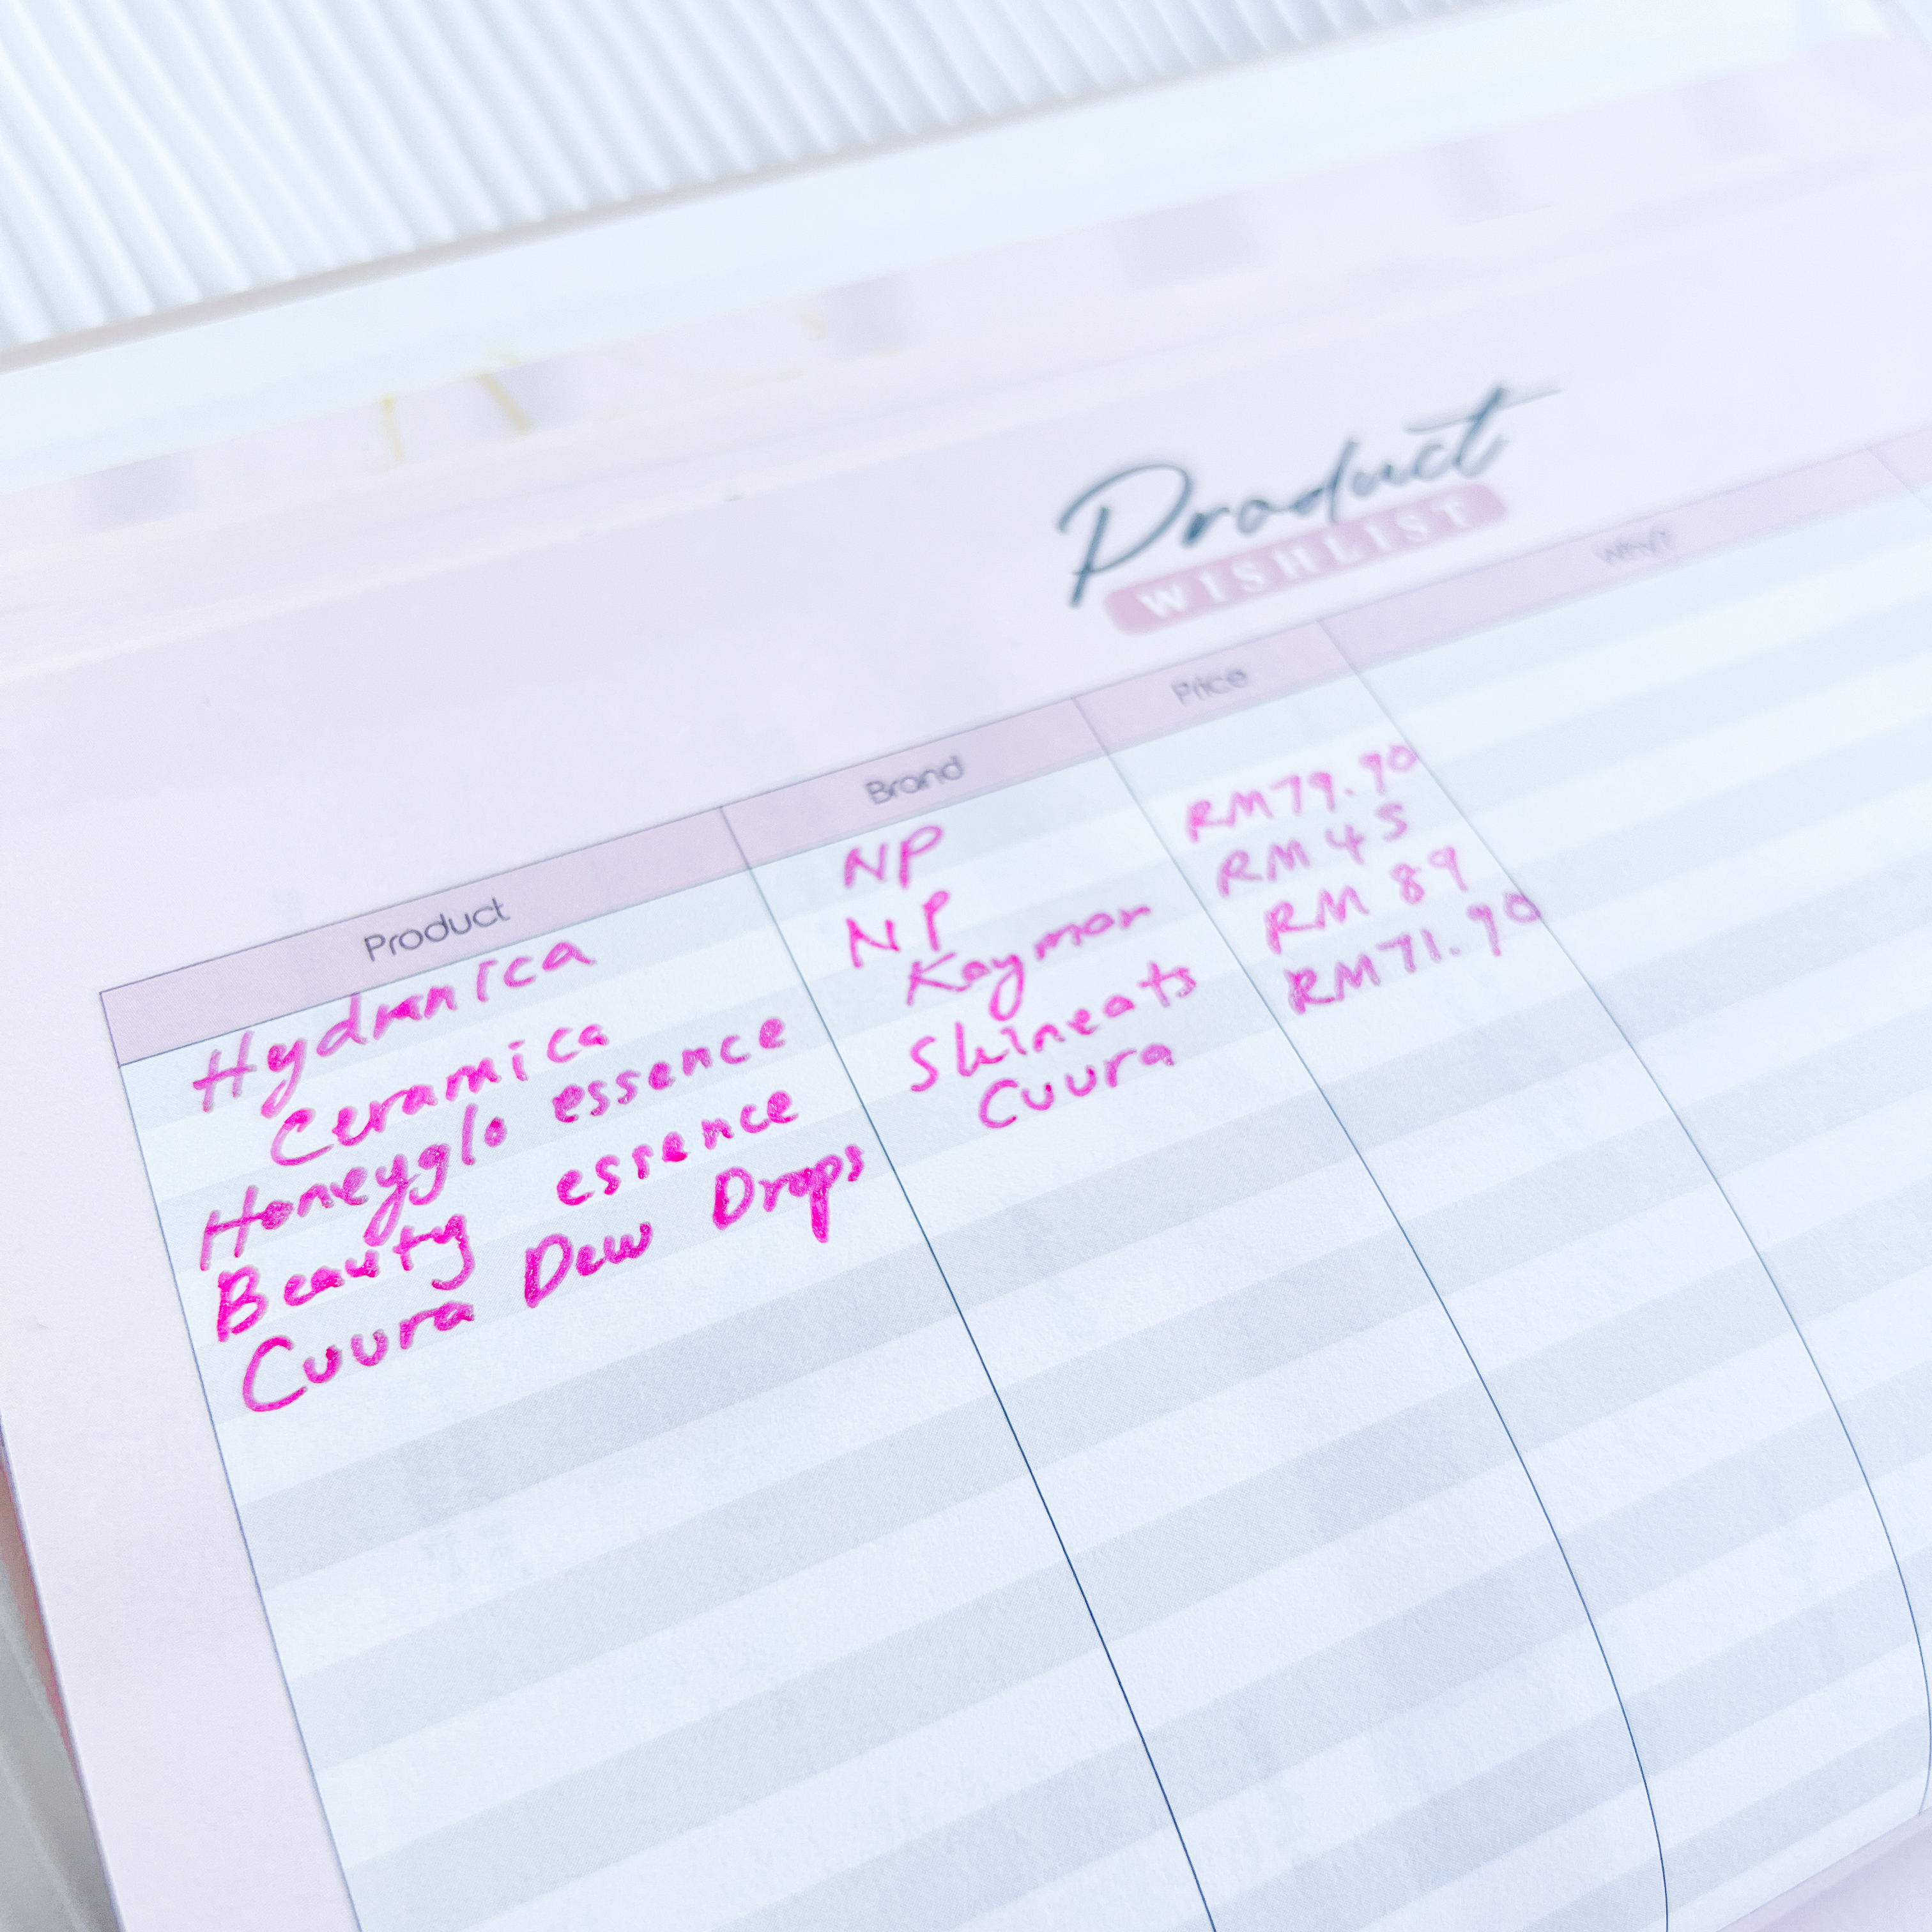 Product
WISHLIST
Product Brand Price Why?
Hydranica NP RM79.90
Ceramica NP RM 45
Honeyglo essence Kaymor RM 89
Beauty essence Skineats RM71.90
Cuura Dew Drops Cuura